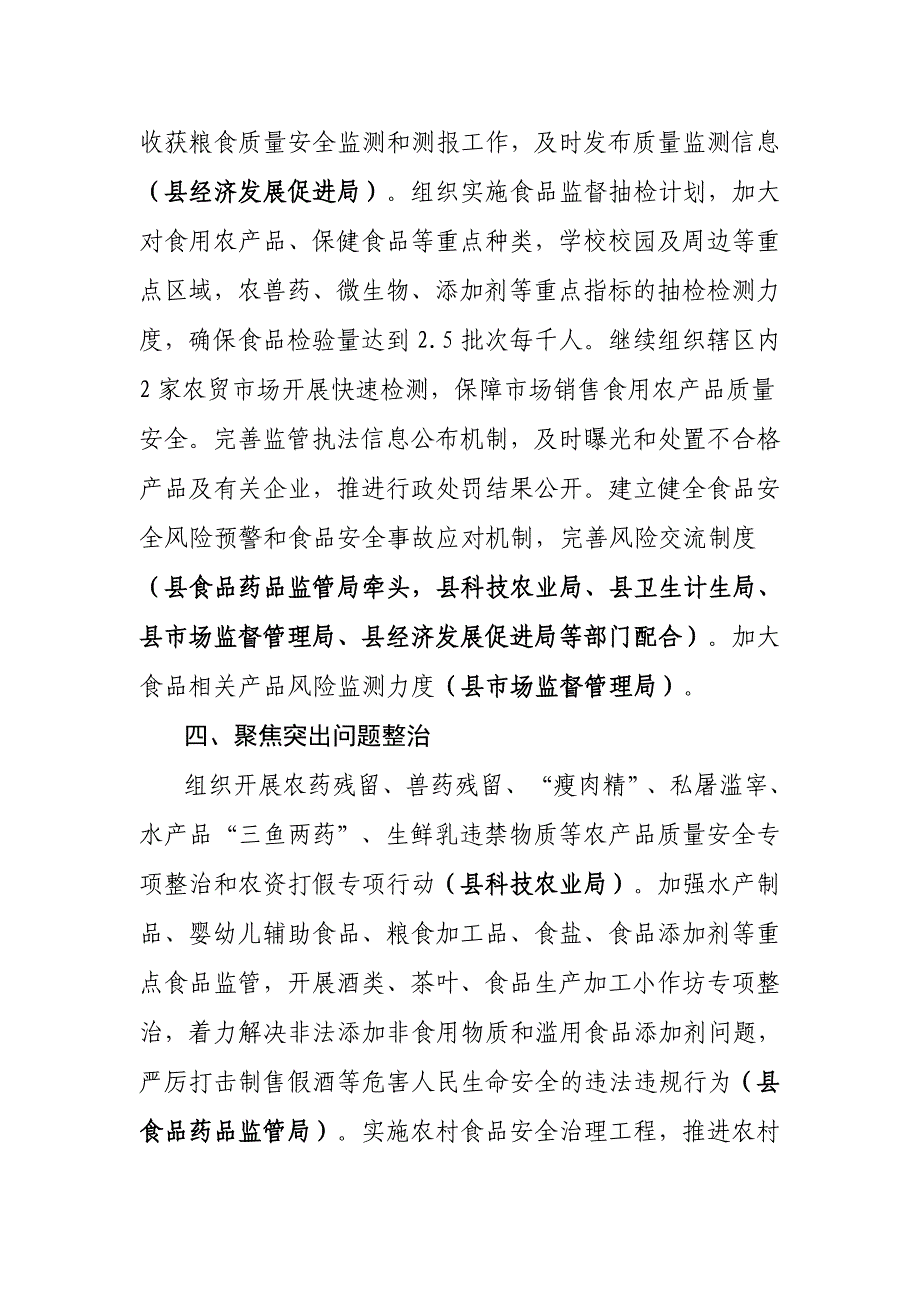 收获粮食质量安全监测和测报工作，及时发布质量监测信息
（县经济发展促进局）。组织实施食品监督抽检计划，加大
对食用农产品、保健食品等重点种类，学校校园及周边等重
点区域，农兽药、微生物、添加剂等重点指标的抽检检测力
度，确保食品检验量达到 2.5 批次每千人。继续组织辖区内
2 家农贸市场开展快速检测，保障市场销售食用农产品质量
安全。完善监管执法信息公布机制，及时曝光和处置不合格
产品及有关企业，推进行政处罚结果公开。建立健全食品安
全风险预警和食品安全事故应对机制，完善风险交流制度
（县食品药品监管局牵头，县科技农业局、县卫生计生局、
县市场监督管理局、县经济发展促进局等部门配合）。加大
食品相关产品风险监测力度（县市场监督管理局）。
四、聚焦突出问题整治
组织开展农药残留、兽药残留、“瘦肉精”、私屠滥宰、
水产品“三鱼两药”、生鲜乳违禁物质等农产品质量安全专
项整治和农资打假专项行动（县科技农业局）。加强水产制
品、婴幼儿辅助食品、粮食加工品、食盐、食品添加剂等重
点食品监管，开展酒类、茶叶、食品生产加工小作坊专项整
治，着力解决非法添加非食用物质和滥用食品添加剂问题，
严厉打击制售假酒等危害人民生命安全的违法违规行为（县
食品药品监管局）。实施农村食品安全治理工程，推进农村